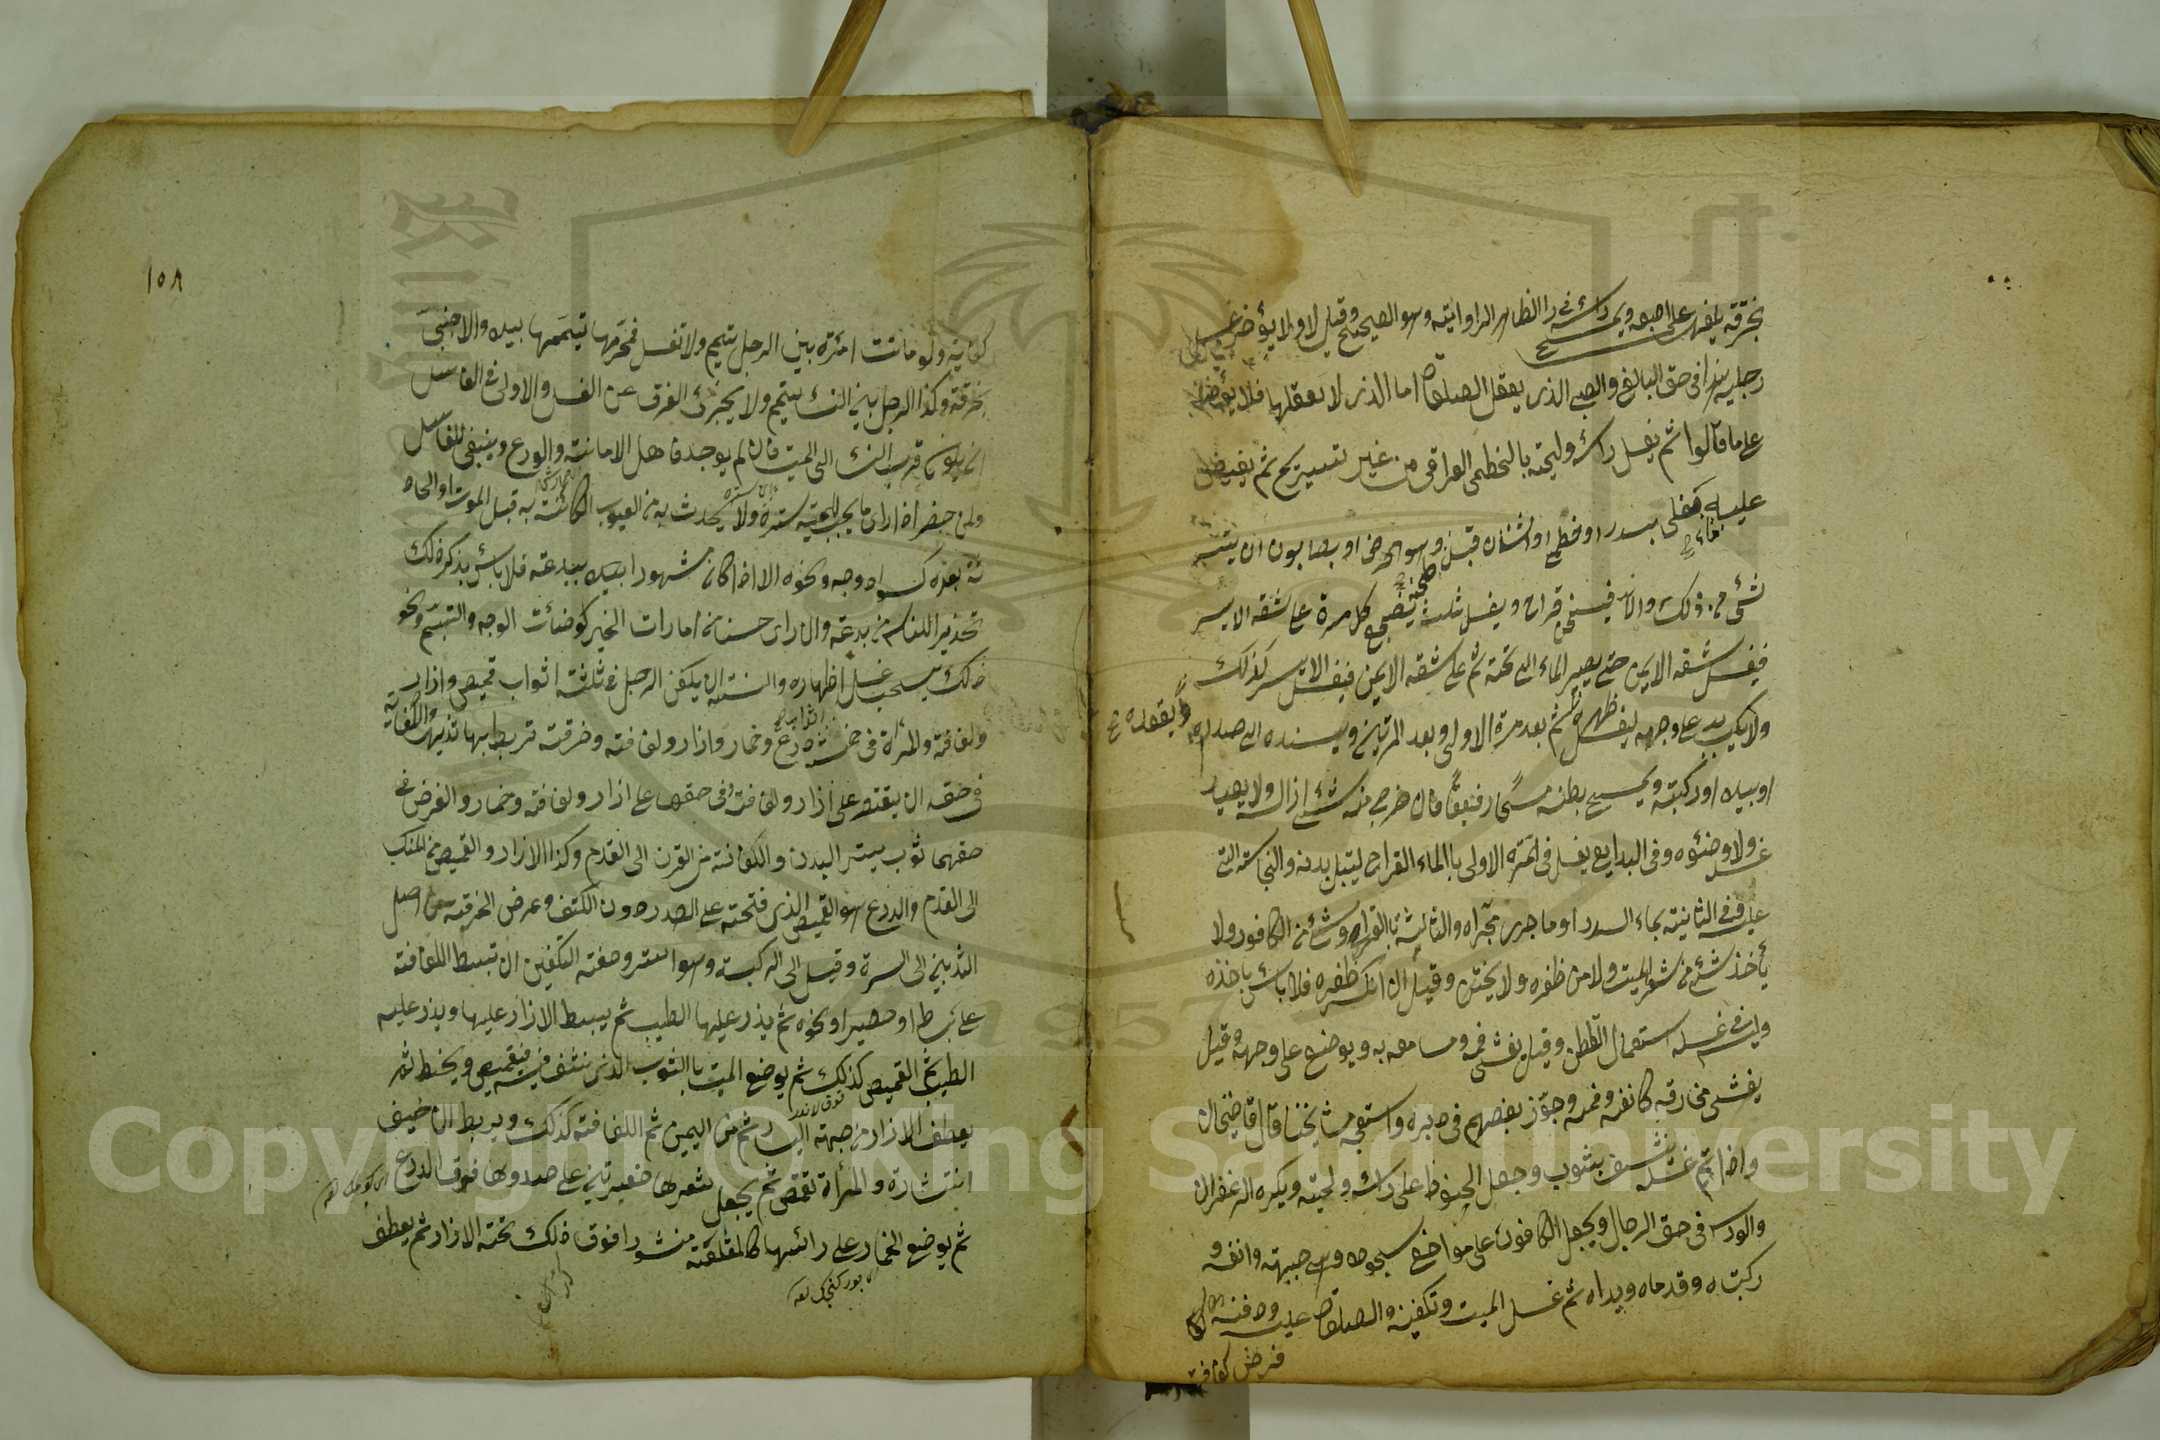 بخرقة يلفها على اصبعه ويمسح راسه في ظاهر الرواية وهو الصحيح وقيل لا ولا يؤخر غسل
رجليه هذا في حق البالغ والصبي الذي يعقل الصلوة اما الذي لا يعقلها فلا يوضأ
على ما قالوا ثم يغسل راسه ولحيته بالخطمي العراقي من غير تسريح ثم يفيض
عليه ماء مغلي بسدر او خطمي او اشنان قبل وهو الحرض او بصابون ان يتيسر
شئ من ذلك والا فيسخن قراح ويغسل ثلث يضجع كل مرة على شقه الايسر
فيغسل شقه الايمن حتى يصير الماء الى تحته ثم على شقه الايمن فيغسل الايسر كذلك
ولا يكب على وجهه ليغسل ظهره ثم بعد مرة الاولى وبعد المرتين ويسنده الى صدره
يقعده
او يده او ركبته ويمسح بطنه مسحا رفيقا فان خرج منه شئ ازاله ولا يعيد
غسله ولا وضوئه وفي البدايع يغسل في المرة الاولى بالماء القراح ليبتل بدنه والنجاسة التي
عليه وفي الثانية بماء السدر او ما جرى مجراه والثالثة بالقراح وشئ من الكافور ولا
يأخذ شئ من شعر الميت ولا من ظفره ولا يختن وقيل ان انكسر ظفره فلا باس باخذه
وليس في غسله استعمال القطن وقيل يغشى فمه ومسامعه به ويوضع على وجهه وقيل
يغشى مخارقه كانفه وفمه وجوز بعضهم في دبره واستقبحه مشايخنا قال قاضيخان
واذا تم غسله ينشف بثوب وجعل الحنوط على راسه ولحيته ويكره الزعفران
والورس في حق الرجال ويجعل الكافور على مواضع سجوده وهي جبهته وانفه و
ركبتاه وقدماه ويداه ثم غسل الميت وتكفينه والصلوة عليه ودفنه
فرض كفاية
١٥٨
كفاية ولو ماتت امرأة بين الرجل تيمم ولا تغسل فمحرمها تيممها بيده والاجنبي
بخرقة وكذا الرجل بين النساء ييمم ولا يجزئ الغرق عن الغسل والاولى في الغاسل
ان يكون قريب الناس الى الميت فان لم يوجد فاهل الامانة والورع وينبغي للغاسل
ولمن حضر اذا راى ما يجب للميت ستره ولا يحدث به من العيوب الكائنة به قبل الموت او الحاد
ثة بعده كسواد وجه ونحوه الا اذا كان مشهورا ببدعة فلا باس بذكر ذلك
تحذيرا للناس من بدعته وان راى حسنا من امارات الخير كوضائت الوجه والتبسم ونحو
ذلك يستحب اظهاره والسنة ان يكفن الرجل في ثلثة اثواب قميص وازار
ولفافة والمرأة في خمسة درع وخمار وازار ولفافة وخرقة تربط بها ثدييها والكفاية
في حقه ان يقتصر على ازار ولفافة وفي حقها على ازار ولفافة وخمار والفرض في
حقهما ثوب يستر البدن واللفافة من القرن الى القدم وكذا الازار والقميص من المنكب
الى القدم والدرع هو القميص الذي فتحته على الصدر دون الكتف وعرض الخرقة من اصل
الثديين الى السرة وقيل الى الركبة وهو استر وصفة التكفين ان تبسط اللفافة
على بساط او حصير او نحوه ثم يذر عليها الطيب ثم يبسط الازار عليها ويذر عليه
الطيب ثم القميص كذلك ثم يوضع الميت بالثوب الذي نشف فيه فيقمص ويحنط ثم
يعطف الازار من جهة اليسار ثم من اليمين ثم اللفافة كذلك ويربط ان خيف
انتشاره والمرأة تقمص ثم يجعل شعرها ضفيرتين على صدرها فوق الدرع
ثم يوضع الخمار على رأسها كالمقنعة منشورا فوق ذلك تحت الازار ثم يعطف
Copyright © King Saud University
1957